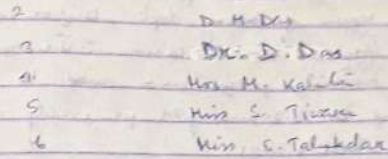 2 D. M. Das
3 Dr. D. Das
4. Mrs. M. Kalita
5 Miss S.
6 Miss S. Talukdar